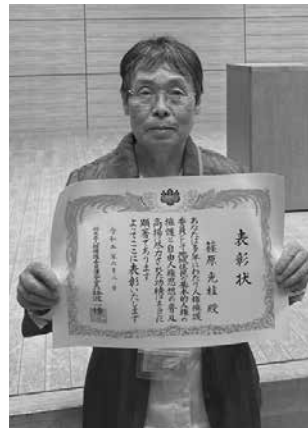 表彰状
篠原克枝殿
あなたは多年にわたり人権擁護
委員として国民の基本的人権の
擁護と自由人権思想の普及
高揚に尽力された功績はまことに
顕著であります
よってここに表彰いたします
令和五年六月八日